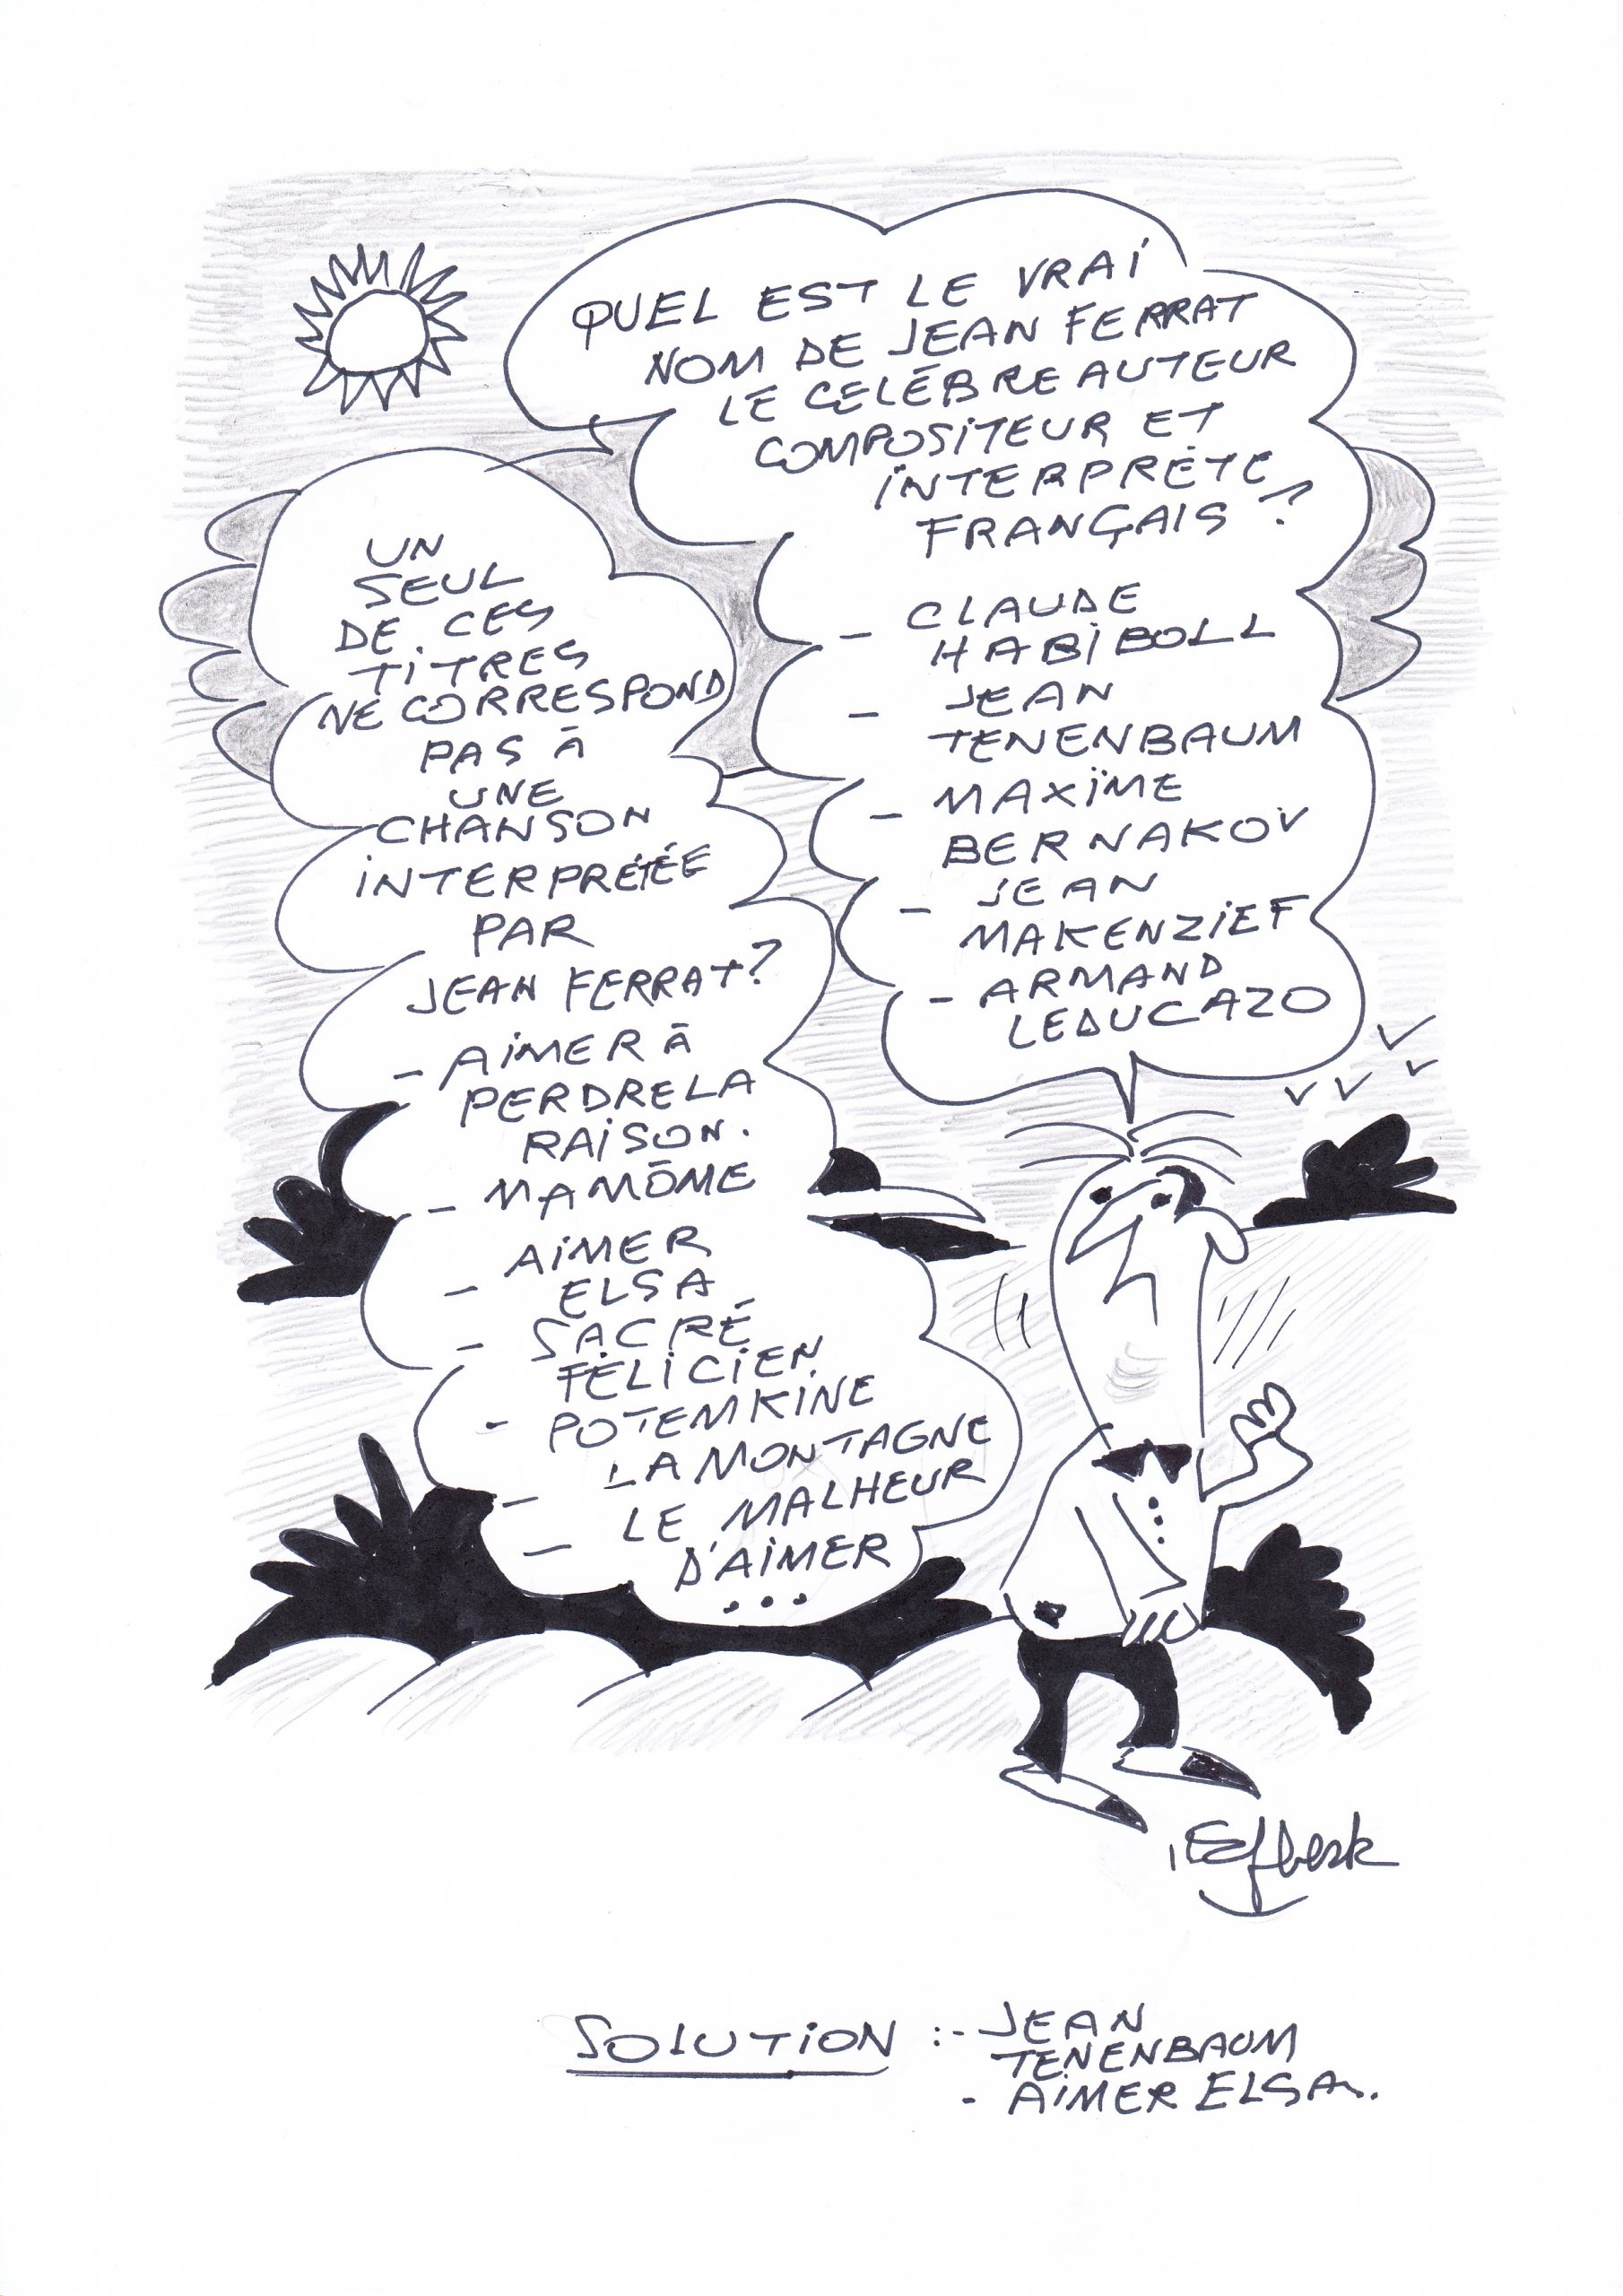 QUEL EST LE VRAI
NOM DE JEAN FERRAT
LE CELÉBRE AUTEUR
COMPOSITEUR ET
INTERPRÈTE
FRANÇAIS ?
- CLAUDE
HABIBOLL
- JEAN
TENENBAUM
- MAXIME
BERNAKOV
- JEAN
MAKENZIEF
- ARMAND
LEDUCAZO
UN
SEUL
DE CES
TITRES
NE CORRESPOND
PAS À
UNE
CHANSON
INTERPRÉTÉE
PAR
JEAN FERRAT?
- AIMER À
PERDRE LA
RAISON.
- MA MÔME
- AIMER
ELSA
- SACRÉ
FÉLICIEN
- POTEMKINE
- LA MONTAGNE
- LE MALHEUR
D'AIMER
...
SOLUTION :- JEAN
TENENBAUM
- AIMER ELSA.